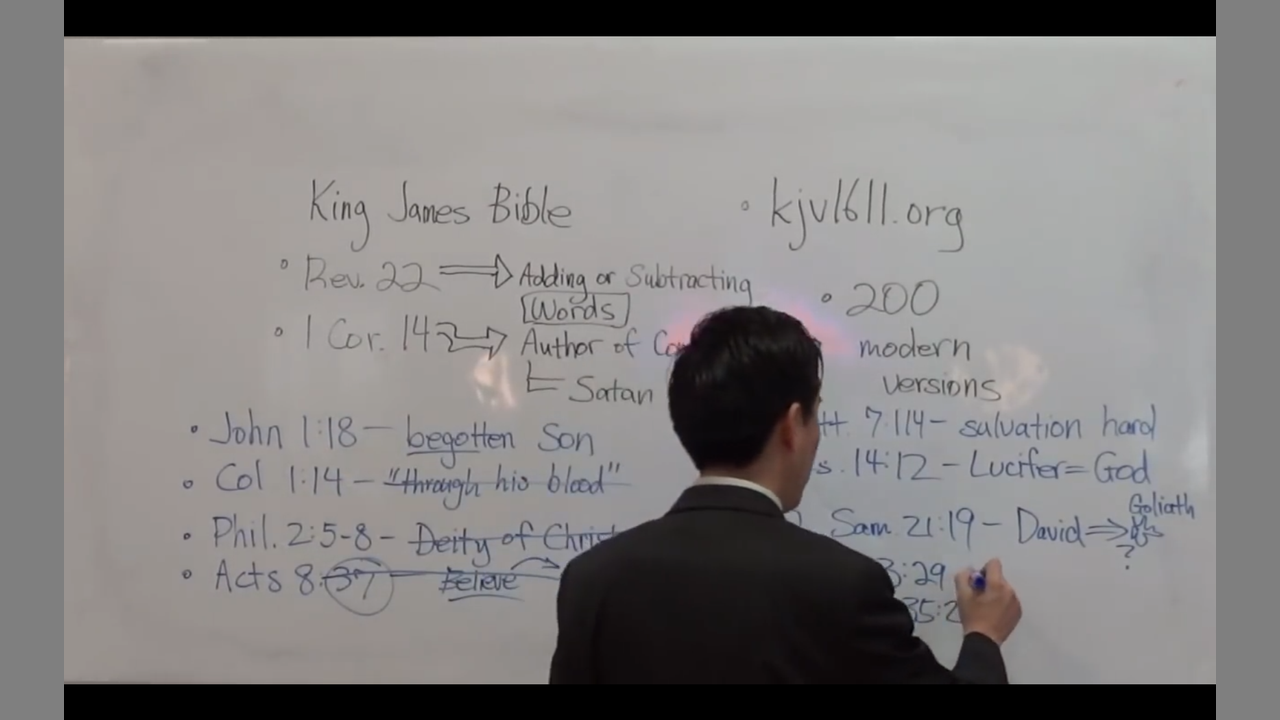 King James Bible
• Rev. 22 ⇒ Adding or Subtracting
Words
• 1 Cor. 14 ⇒ Author of
Satan
• John 1:18 – begotten Son
• Col 1:14 – "through his blood"
• Phil. 2:5-8 – Deity of Christ
• Acts 8:37 Believe
• kjv1611.org
• 200
modern
versions
7:14 – salvation hard
14:12 – Lucifer = God
Sam. 21:19 – David ⇒ Goliath
?
3:29
35:2